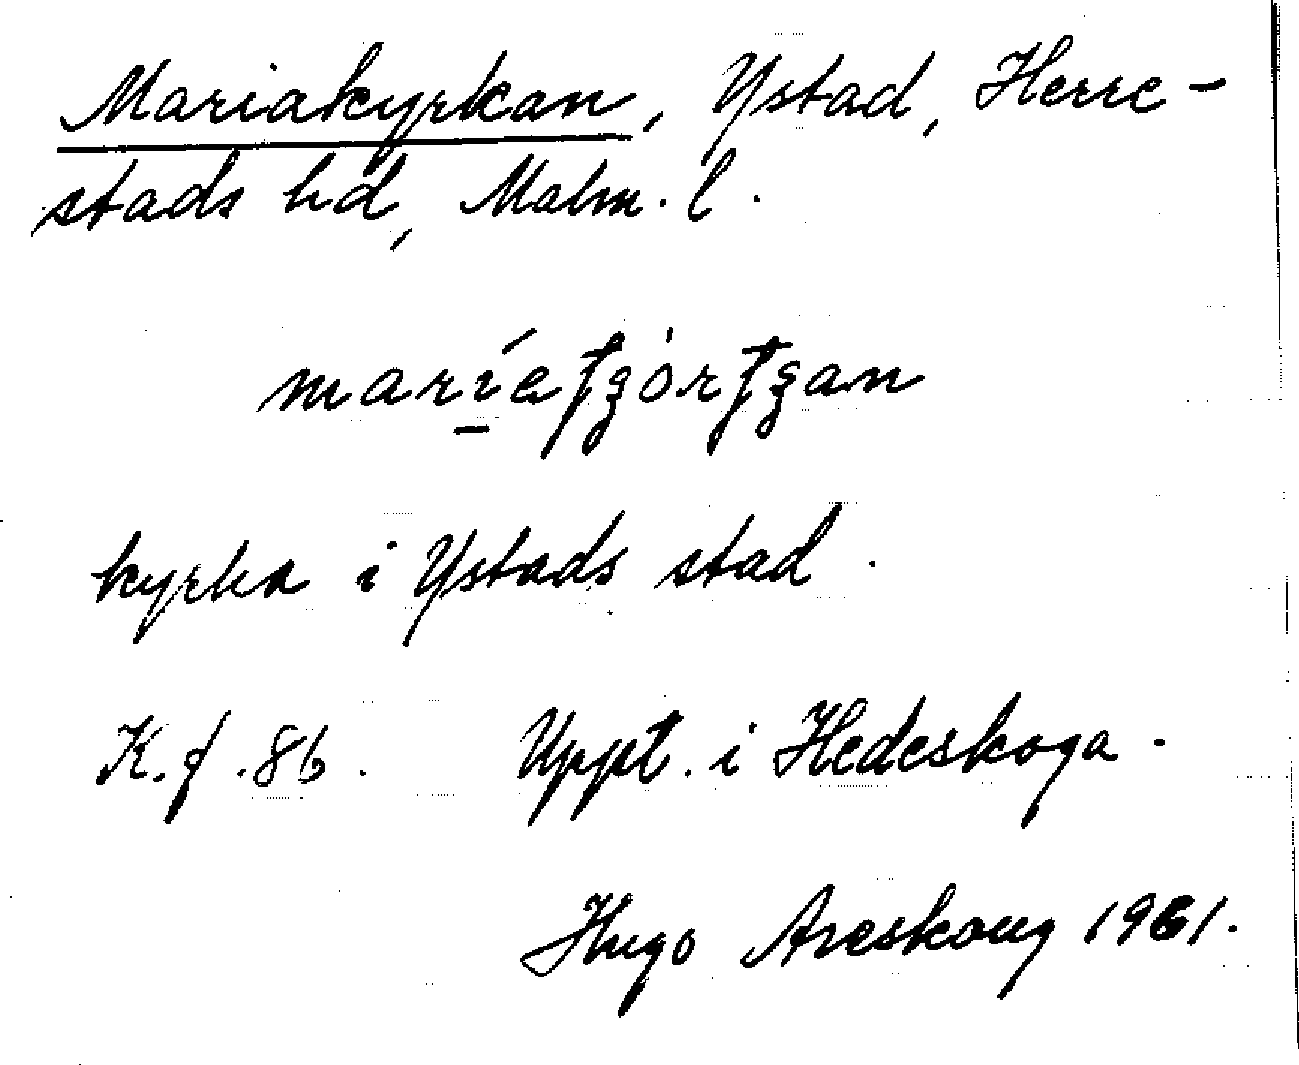 Mariakyrkan, Ystad, Herre-
stads hd, Malm. l.
kyrka i Ystads stad.
K.f. 86. Uppt. i Hedeskoga.
Hugo Areskoug 1961.